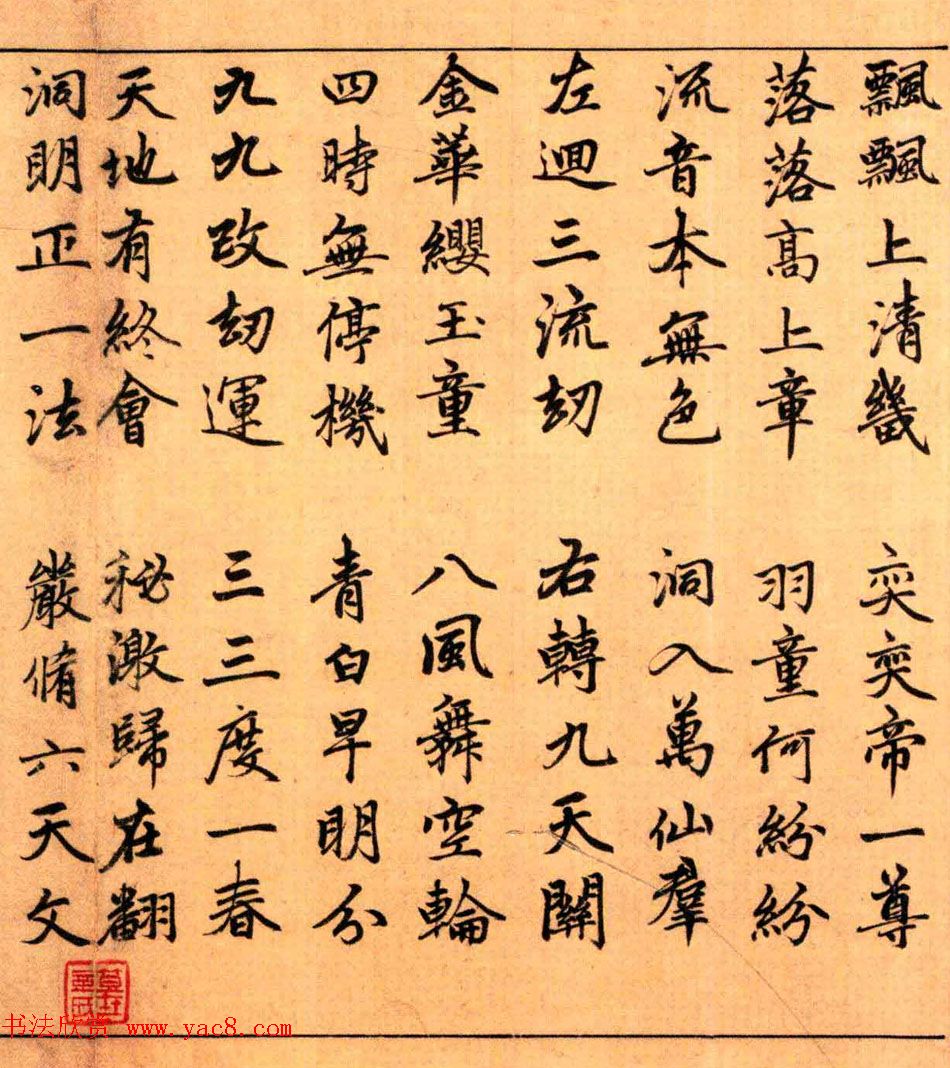 飄飄上清畿 奕奕帝一尊
落落高上章 羽童何紛紛
流音本無色 洞入萬仙羣
左迴三流劫 右轉九天關
金華纓玉童 八風舞空輪
四時無停機 青白早明分
九九改劫運 三三度一春
天地有終會 秘激歸在翻
洞明正一法 嚴脩六天文
书法欣赏 www.yac8.com